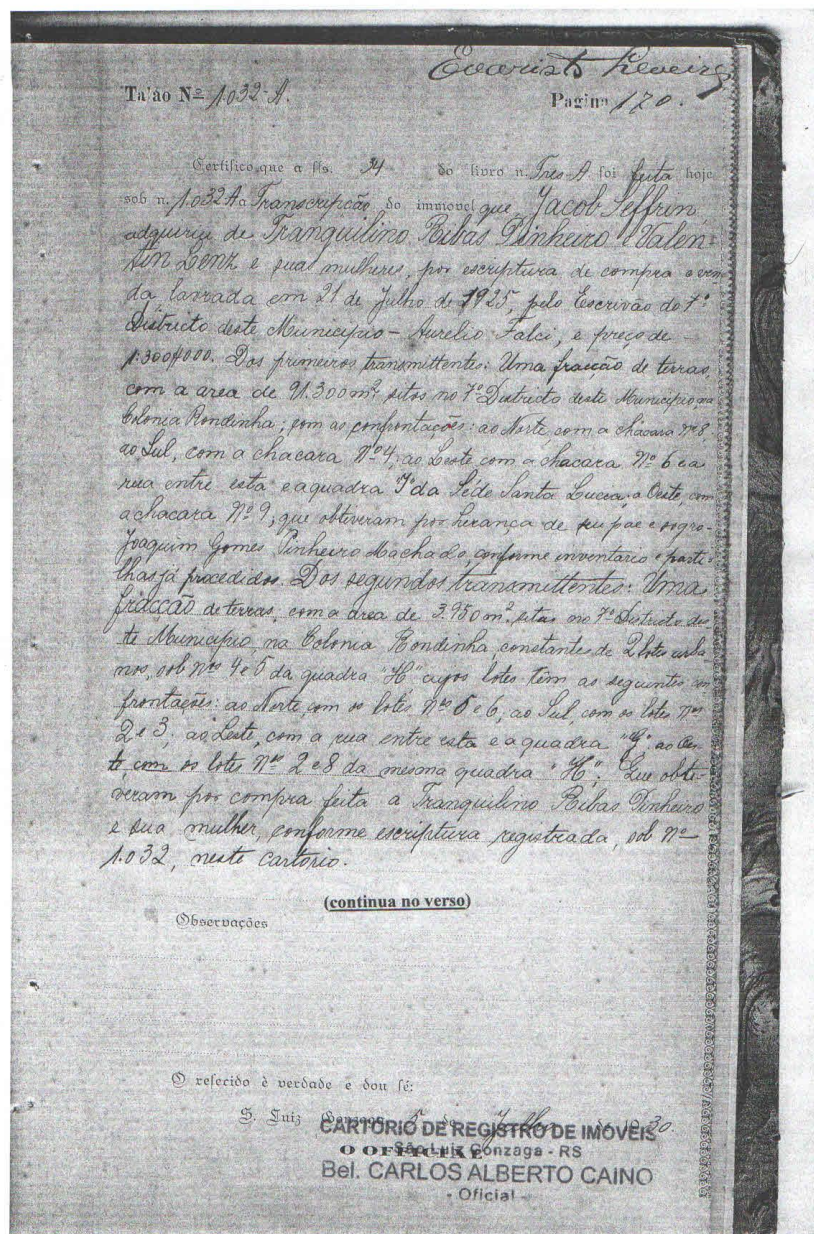 Evaristo
Ta'ão Nº 1.032-A. Pagina 170.
Certifico que a fls. 34 do livro n. Tres-A foi feita hoje
sob n. 1.032 A a Transcripção do immovel que, Jacob Seffrin,
adquiriu de Tranquilino Ribas Pinheiro e Valen-
tin Lenz e suas mulheres, por escriptura de compra e ven
da, lavrada em 21 de Julho de 1925, pelo Escrivão do 7º
Districto deste Municipio - Aurelio Falci, e preço de
1.300$000. Dos primeiros transmittentes: Uma fracção de terras,
com a area de 91.300m², sitos no 7º Districto deste Municipio, na
Colonia Rondinha; com as confrontações: ao Norte com a chacara Nº 8,
ao Sul, com a chacara Nº 4, ao Leste com a chacara Nº 6 e a
rua entre esta e a quadra "J" da Séde Santa Lucia, a Oeste, com
a chacara Nº 9, que obtiveram por herança de seu pae e sogro-
Joaquim Gomes Pinheiro Machado, conforme inventario e parti-
lhas já procedidos. Dos segundos transmittentes: Uma
fracção de terras, com a area de 3.950m², sitas no 7º Districto des-
te Municipio, na Colonia Rondinha, constantes de 2 lotes urba-
nos, sob nºs 4 e 5 da quadra "H" cujos lotes têm as seguintes con
frontações: ao Norte, com os lotes Nºs 5 e 6, ao Sul, com os lotes Nºs
2 e 3; ao Leste, com a rua entre esta e a quadra "G" ao Oes-
te, com os lotes Nºs 2 e 8 da mesma quadra "H". Que obti-
veram por compra feita a Tranquilino Ribas Pinheiro
e sua mulher, conforme escriptura registrada, sob Nº
1.032, neste cartorio.
(continua no verso)
Observações
O referido è verdade e dou fé:
S. Luiz Gonzaga, 5 de Julho de 1930.
CARTÓRIO DE REGISTRO DE IMÓVEIS
O OFFICIAL
São Luiz Gonzaga - RS
Bel. CARLOS ALBERTO CAINO
- Oficial -